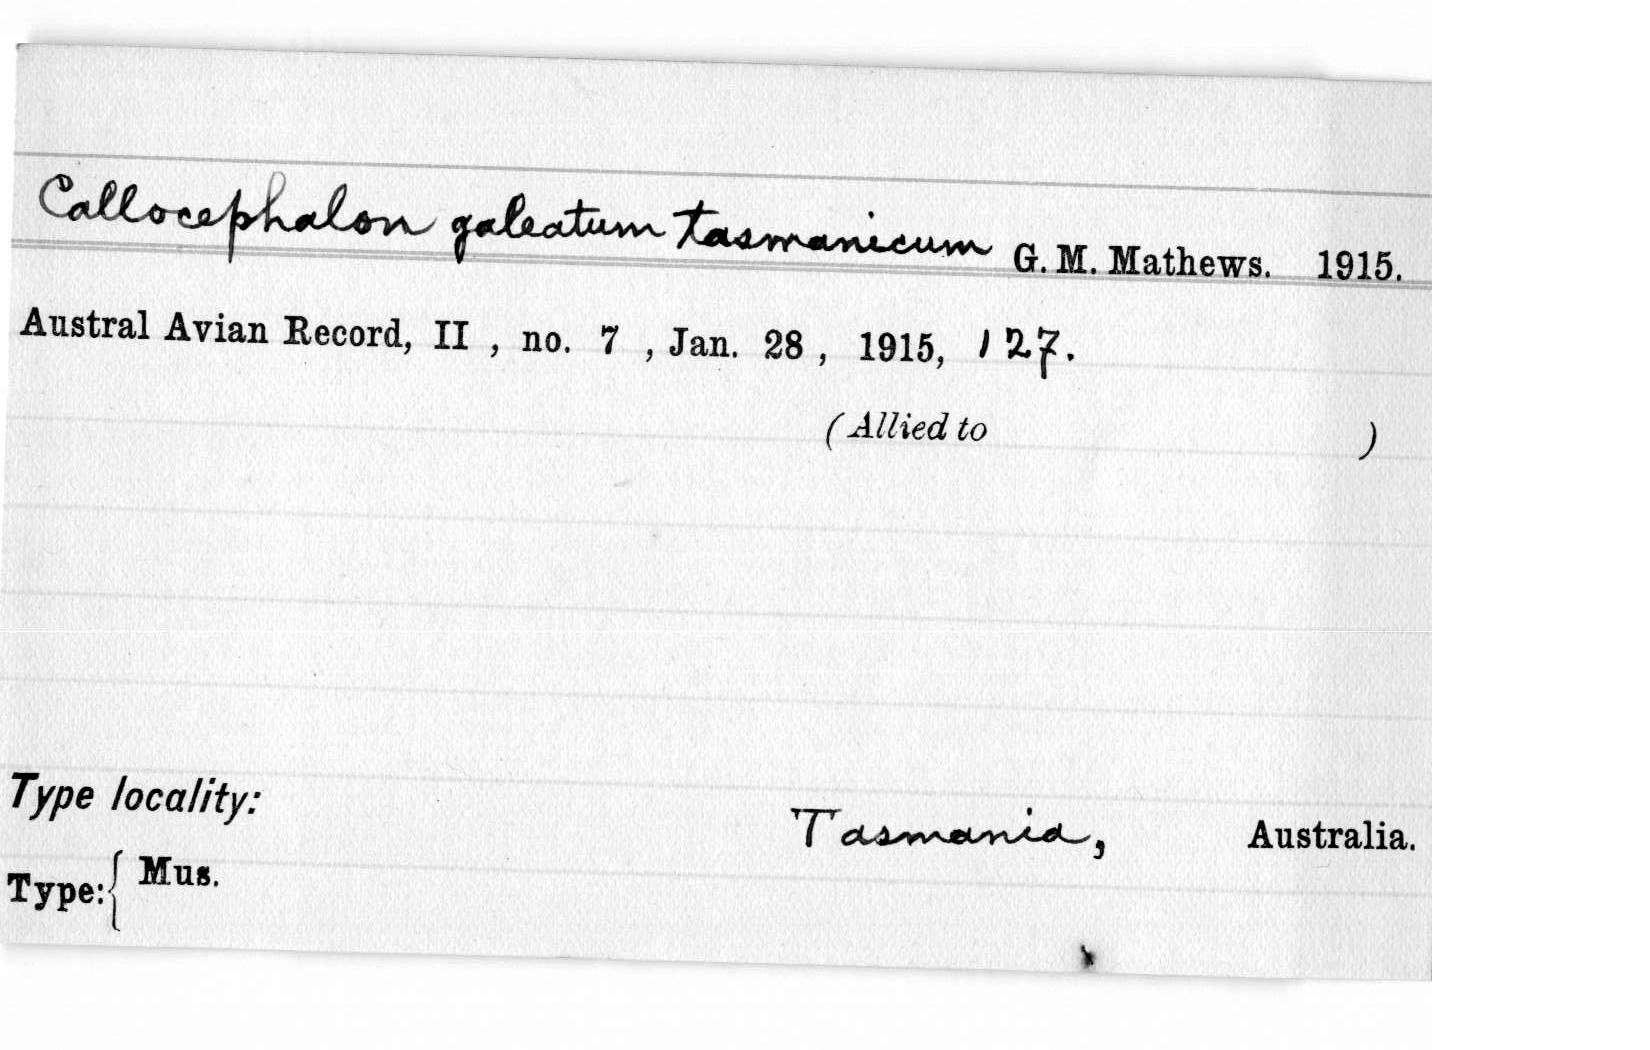 Callocephalon galeatum tasmanicum G. M. Mathews. 1915.
Austral Avian Record, II , no. 7 , Jan. 28 , 1915, 127.
(Allied to )
Type locality:
Tasmania, Australia.
Type: { Mus.